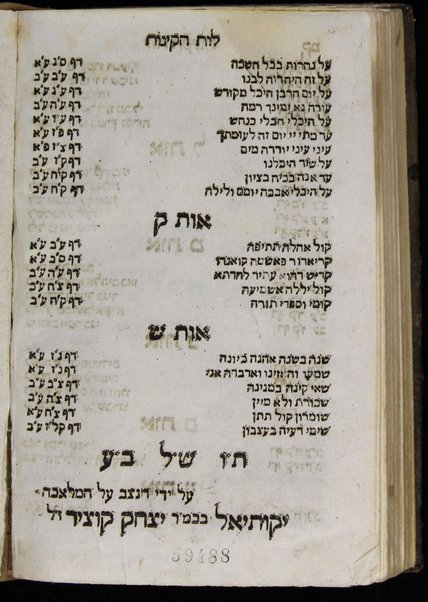 לוח הקינות
על נהרות בבל חשכה דף ס״ג ע״א
על זה היה דוה לבנו דף ע״ב ע״ב
על יום חרבן היכל מקודש דף ע״ג ע״א
עורה נא ימינך רמה דף ע״ה ע״ב
על היכלי חבלי כנחש דף ע״ז ע״א
עד מתי יי יום זה לעומתך דף פ״ז ע״א
עיני עיני יורדה מים דף צ״ז ע״א
על שוד היכלנו דף ק״ז ע״ב
עד אנה בכיה בציון דף ק״ח ע״ב
על היכלי אבכה יומם ולילה דף ק״ח ע״ב
אות ק
קול אהלה תתיפח דף ע״ב ע״א
דף ס״ב ע״א
דף ע״ה ע״ב
קול יללה אשמיעה דף ע״ב ע״ב
קומי וספדי תורה דף ק״ח ע״ב
אות ש
שנה בשנה אהגה כיונה דף נ״ז ע״א
שמעו והאזינו ואדברה אני דף נ״ז ע״ב
שאי קינה במגינה דף צ״ב ע״ב
שכורת ולא מיין דף צ״ה ע״ב
שומרון קול תתן דף צ״ח ע״א
שימי דעיה בעצבון דף קל״ז ע״ב
תז של ב״ע
על ידי הנצב על המלאכה
יקותיאל בכמ״ר יצחק קוציר ז״ל
59488